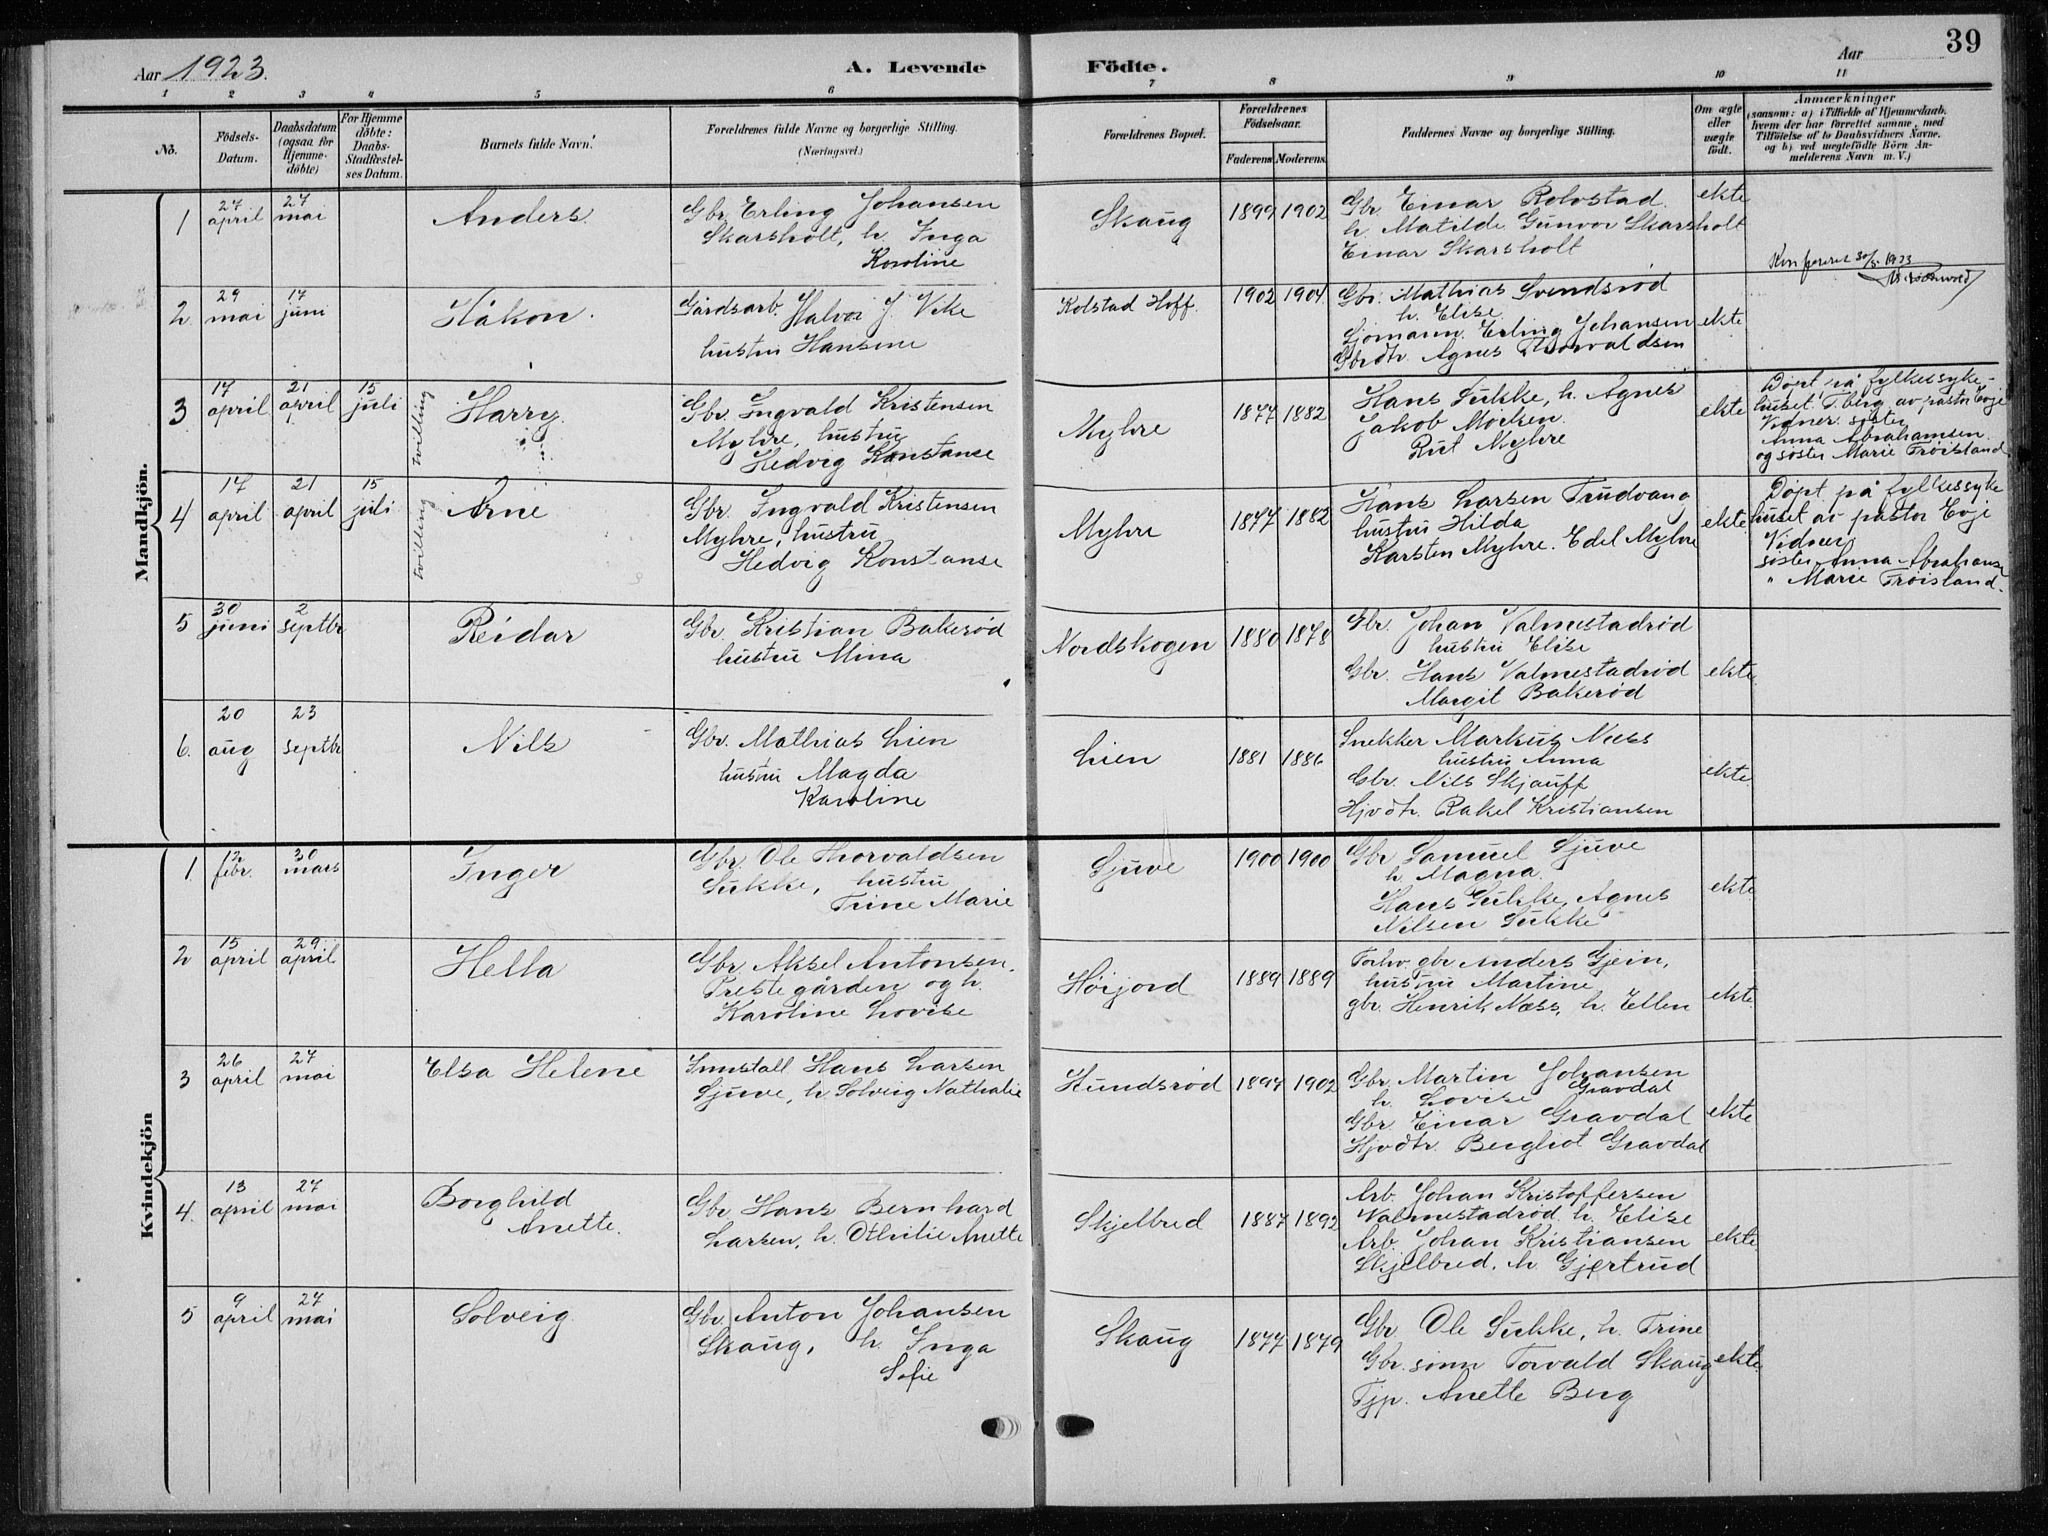 39
Aar 1923.
A. Levende Födte.
Aar
1 2 3 4 5 6 7 8 9 10 11
No.
Födsels-Datum.
Daabsdatum (ogsaa for Hjemmedöbte)
For Hjemmedöbte: Daabs-Stadfæstelses Datum.
Barnets fulde Navn.
Forældrenes fulde Navne og borgerlige Stilling.
(Næringsvei.)
Forældrenes Bopæl.
Forældrenes Födselsaar.
Faderens. Moderens.
Faddernes Navne og borgerlige Stilling.
Om ægte eller uægte födt.
Anmærkninger
(saasom: a) i Tilfælde af Hjemmedaab.
hvem der har forrettet samme, med
Tilföielse af to Daabsvidners Navne.
og b) ved uægtefödte Börn Anmelderens Navn m. V.)
Mandkjön.
1
27 april
27 mai
Anders.
Gbr. Erling Johansen
Skarsholt, h. Inga
Karoline
Skaug
1899 1902
Gbr. Einar Rolvstad.
h. Matilde Gunvor Skarsholt
Einar Skarsholt
ekte
Konfereret 30/5 1923
2
29 mai
17 juni
Håkon.
Gårdsarb. Halvor J. Vike
hustru Hansine
Kolstad Hoff.
1902 1904
Gbr. Mathias Svendsrød
h. Elise
Sjømann. Erling Johansen
Gbrdtr. Agnes Thorvaldsen
ekte
3
17 april
21 april
15 juli
tvilling
Harry
Gbr. Ingvald Kristensen
Myhre, hustru
Hedvig Konstanse
Myhre
1877 1882
Hans Sukke, h. Agnes
Jakob Mørken.
Rut Myhre
ekte
Døpt på fylkessyke-
huset T.berg av pastor Evje
Vidner. søster
Anna Abrahamsen.
og søster Marie Trøisland
4
17 april
21 april
15 juli
tvilling
Arne
Gbr. Ingvald Kristensen
Myhre, hustru
Hedvig Konstanse
Myhre
1877 1882
Hans Larsen Trudvang
hustru Hilda
Karsten Myhre. Edel Myhre
ekte
Døpt på fylkessyke
huset av pastor Evje
Vidner
søster Anna Abrahamse
" Marie Trøisland.
5
30 juni
2 septbr
Reidar
Gbr. Kristian Bakerød
hustru Mina
Nordskogen
1880 1878
Gbr. Johan Valmestadrød
hustru Elise
Gbr. Hans Valmestadrød
Margit Bakerød
ekte.
6.
20 aug
23 septbr
Nils
Gbr. Mathias Lien
hustru Magda
Karoline
Lien
1881 1886
Snekker Markus Næss
hustru Anna
Gbr. Nils Skjauff
Hjvdtr. Rakel Kristiansen
ekte.
Kvindekjön
1.
12 febr.
30 mars
Inger
Gbr Ole Thorvaldsen
Sukke, hustru
Trine Marie
Sjuve
1900 1900
Gbr Samuel Sjuve
h. Magna.
Hans Sukke, Agnes
Nilsen Sukke
ekte.
2
15 april
29 april
Hella
Gbr Aksel Antonsen.
Prestegården og h.
Karoline Lovise
Hørjord
1889 1889
Forhv. gbr Anders Gjein,
hustru Martine
gbr. Henrik Næss, h. Ellen
ekte.
3
26 april
27 mai
Elsa Helene
Innstall Hans Larsen
Sjuve, h Solveig Nathalie
Hundsrød
1897 1902
Gbr. Martin Johansen
h. Lovise Gravdal
Gbr. Einar Gravdal
Hjvdtr. Bergliot Gravdal
ekte
4.
13 april
27 mai
Borghild
Anette.
Gbr Hans Bernhard
Larsen, h. Othilie Anette
Skjelbred
1887 1892
Arb. Johan Kristoffersen
Valmestadrød. h. Elise
Arb. Johan Kristiansen
Skjelbred. h. Gjertrud
ekte
5
9 april
27 mai
Solveig
Gbr. Anton Johansen
Skaug, h. Inga
Sofie
Skaug
1877 1879
Gbr. Ole Sukke, h. Trine
Gbr. sønn Torvald Skaug
Tjp. Anette Berg
ekte.